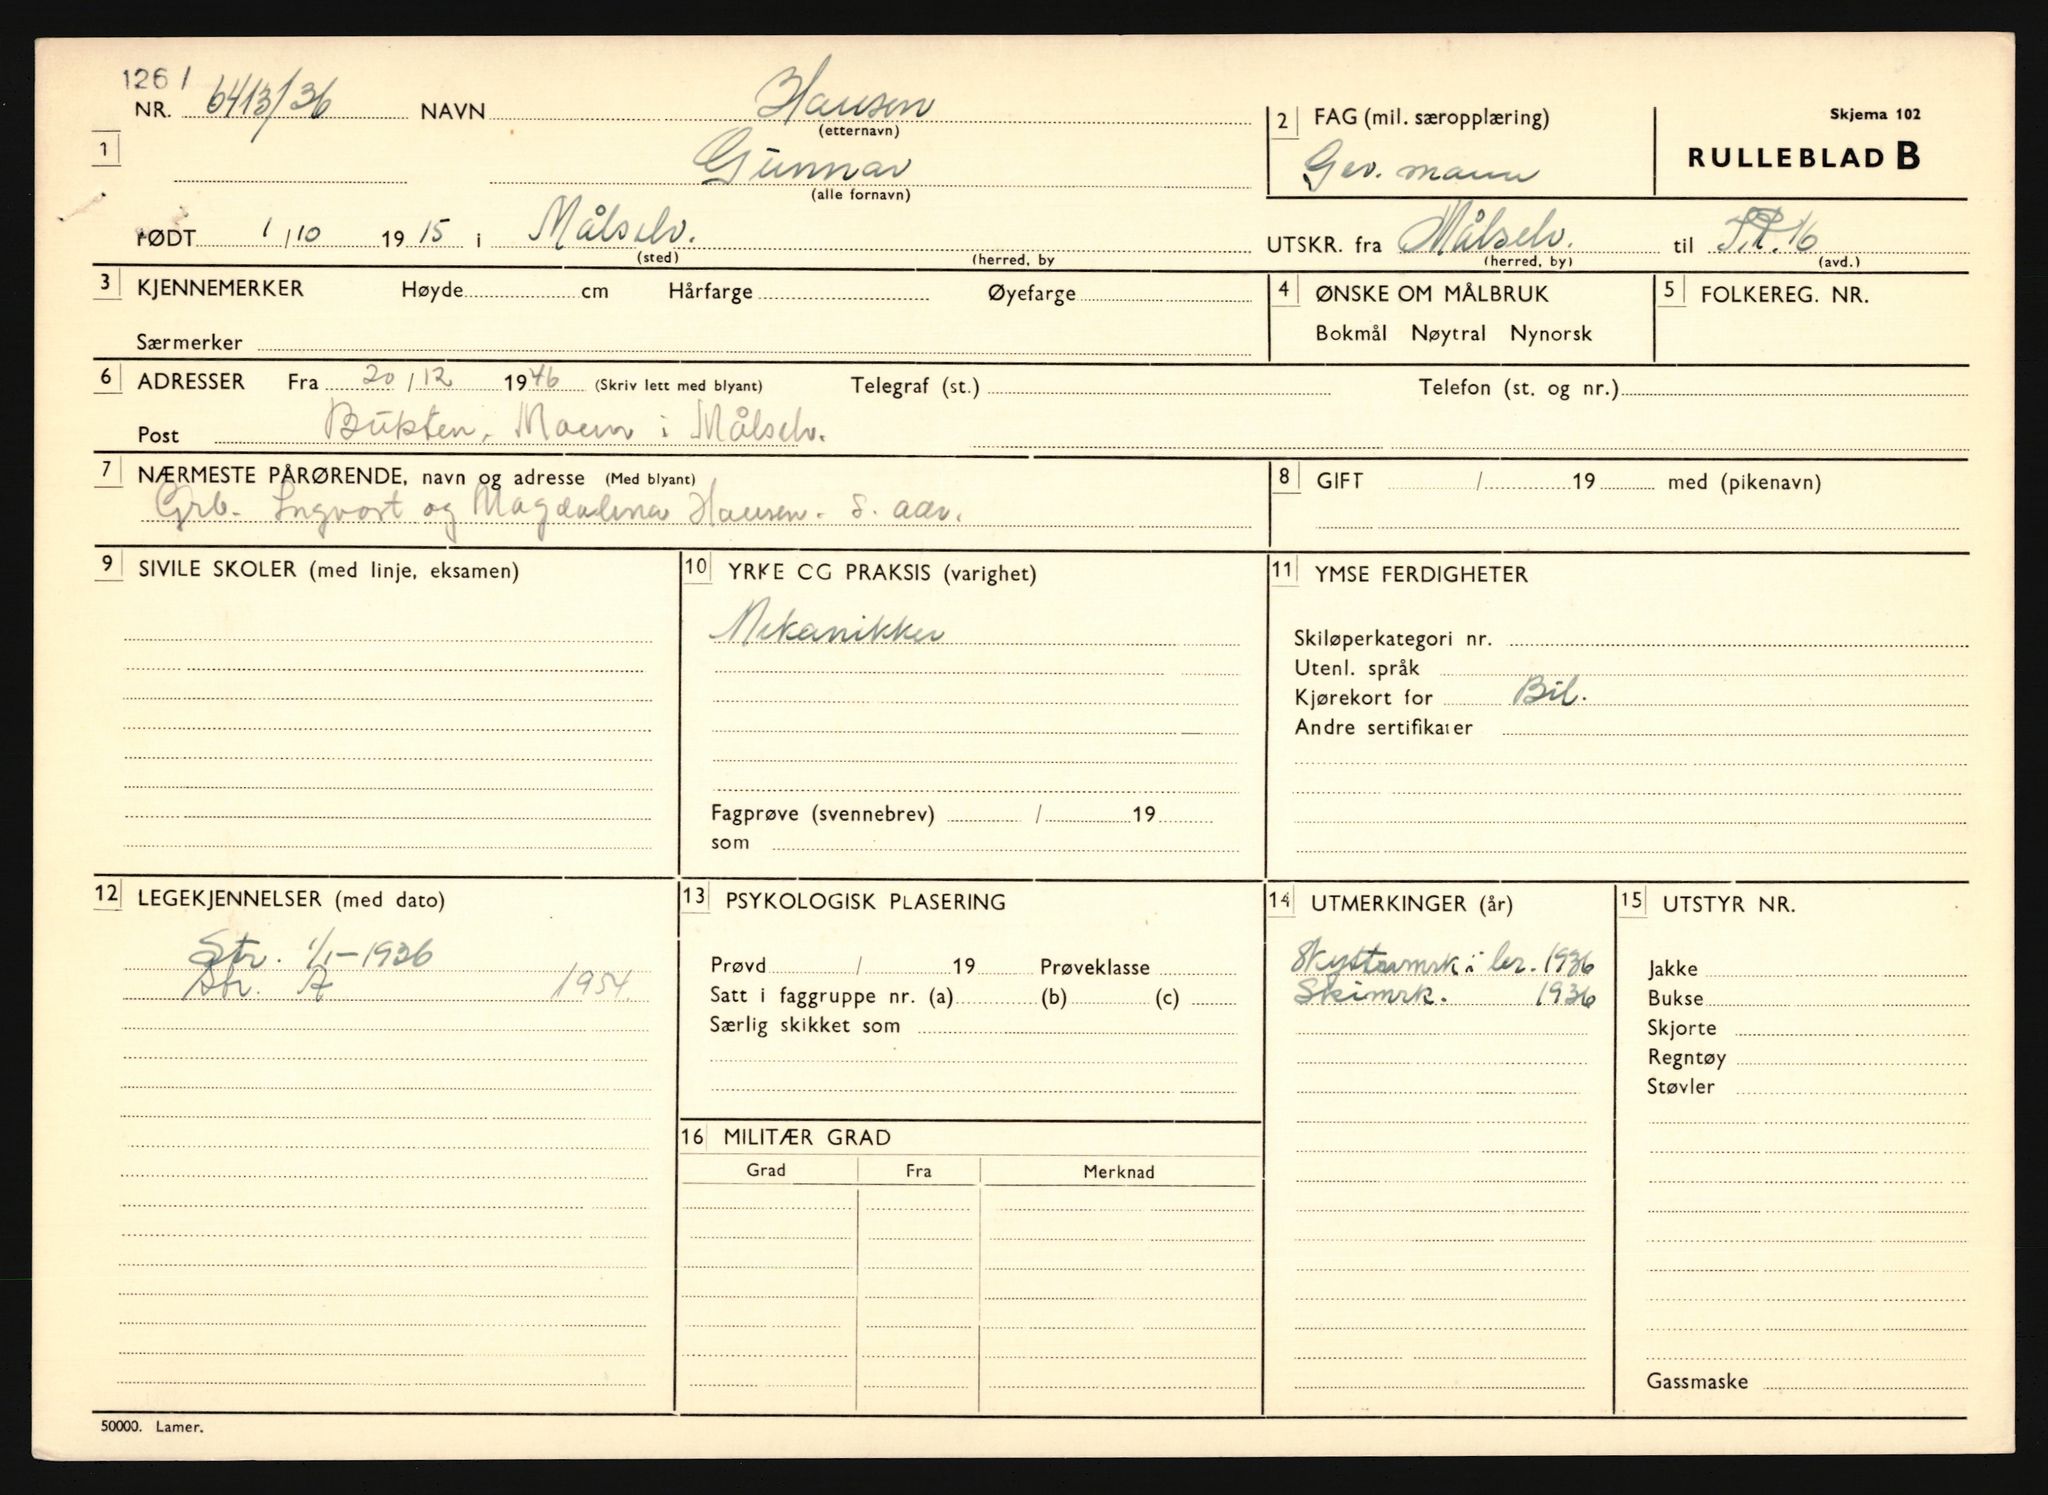 1261
NR. 6413/36 NAVN Hansen
(etternavn)
1 Gunnar
(alle fornavn)
2 FAG (mil. særopplæring)
Gev. mann
Skjema 102
RULLEBLAD B
FØDT 1/10 1915 i Målselv.
(sted) (herred, by
UTSKR. fra Målselv. til I.R.16
(herred, by) (avd.)
3 KJENNEMERKER Høyde cm Hårfarge Øyefarge
Særmerker
4 ØNSKE OM MÅLBRUK
Bokmål Nøytral Nynorsk
5 FOLKEREG. NR.
6 ADRESSER Fra 20/12 1946 (Skriv lett med blyant) Telegraf (st.) Telefon (st. og nr.)
Post Bukten, Moen i Målselv.
7 NÆRMESTE PÅRØRENDE, navn og adresse (Med blyant)
Grb. Ingvart og Magdalena Hansen. s. adr.
8 GIFT / 19 med (pikenavn)
9 SIVILE SKOLER (med linje, eksamen)
10 YRKE OG PRAKSIS (varighet)
Mekanikker
Fagprøve (svennebrev) / 19
som
11 YMSE FERDIGHETER
Skiløperkategori nr.
Utenl. språk
Kjørekort for Bil.
Andre sertifikater
12 LEGEKJENNELSER (med dato)
Str. 1/1-1936
Str. A 1954.
13 PSYKOLOGISK PLASERING
Prøvd / 19 Prøveklasse
Satt i faggruppe nr. (a) (b) (c)
Særlig skikket som
14 UTMERKINGER (år)
Skyttermrk. i ler. 1936
Skimrk. 1936
15 UTSTYR NR.
Jakke
Bukse
Skjorte
Regntøy
Støvler
Gassmaske
16 MILITÆR GRAD
Grad Fra Merknad
50000. Lamer.